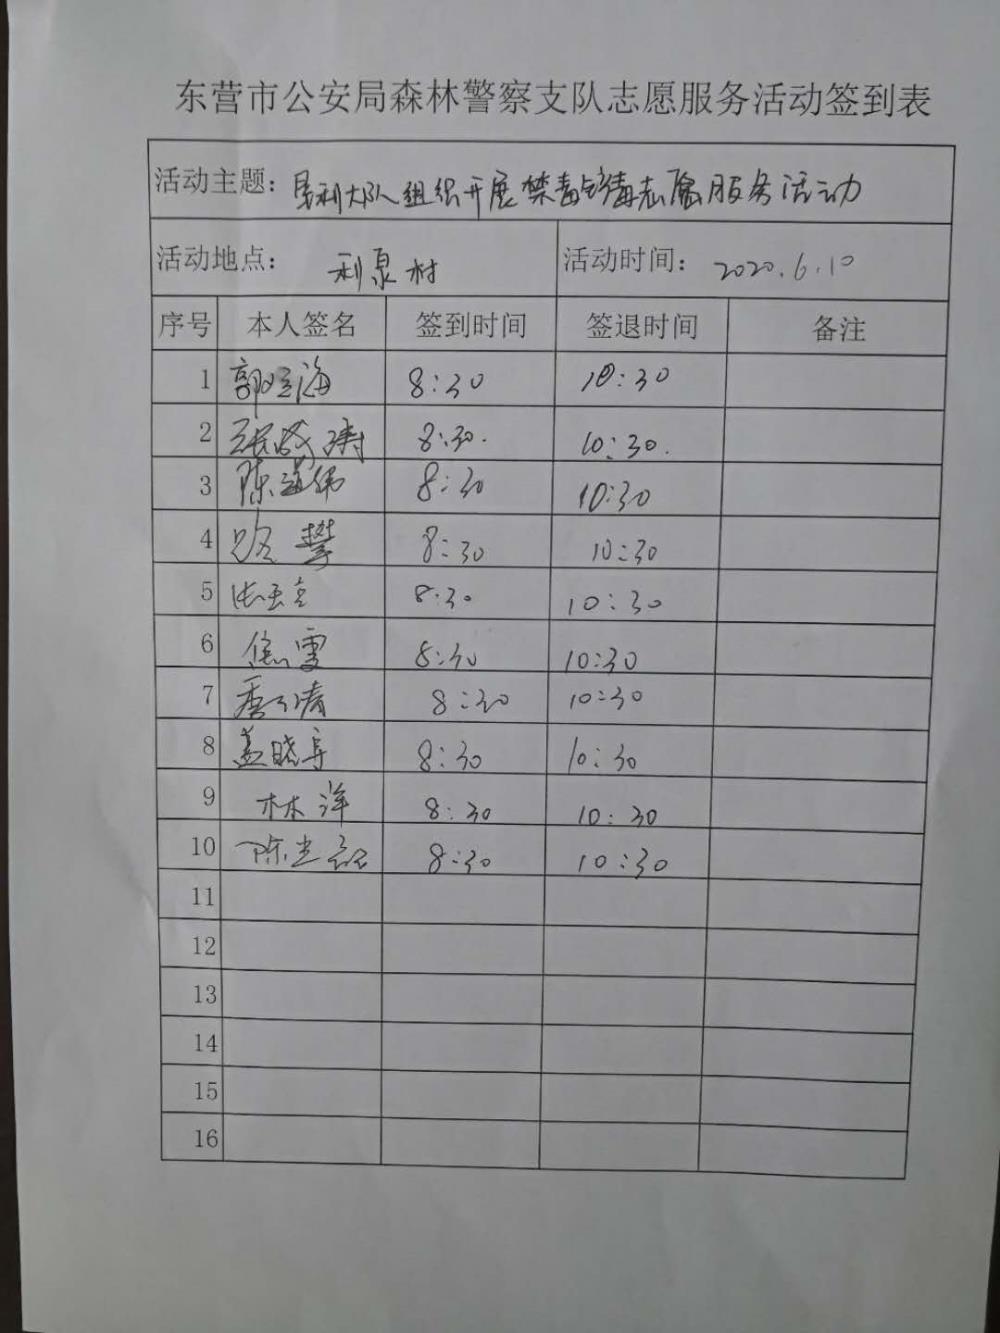 东营市公安局森林警察支队志愿服务活动签到表
活动主题：垦利大队组织开展禁毒铲毒志愿服务活动
活动地点： 利泉村 活动时间： 2020.6.10
序号 本人签名 签到时间 签退时间 备注
1 8:30 10:30
2 8:30. 10:30.
3 陈道伟 8:30 10:30
4 路攀 8:30 10:30
5 8:30 10:30
6 焦雪 8:30 10:30
7 8:30 10:30
8 盖晓 8:30 10:30
9 林洋 8:30 10:30
10 陈光 8:30 10:30
11
12
13
14
15
16